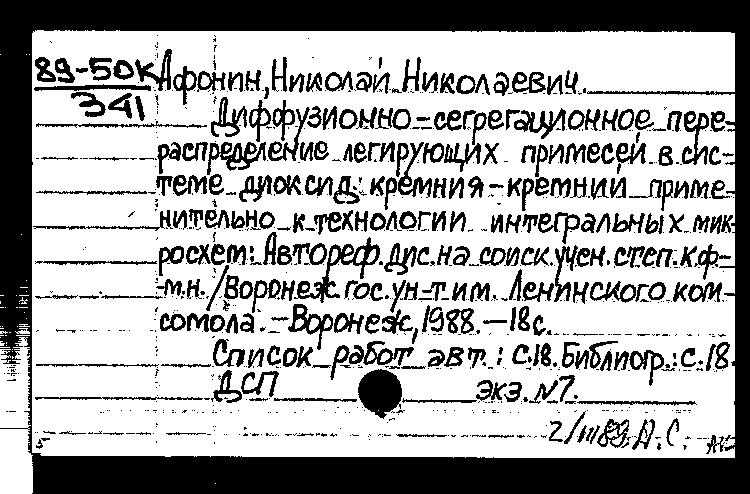 89-50К Афонин, Николай Николаевич.
341
Диффузионно-сегрегационное пере-
распределение легирующих примесей в сис-
теме диоксид кремния-кремний приме-
нительно к технологии интегральных мик-
росхем: Автореф. дис. на соиск. учен. степ. к.ф-
-м.н. /Воронеж. гос. ун-т им. Ленинского ком-
сомола. - Воронеж, 1988. - 18 с.
Список работ авт.: с. 18. Библиогр.: с. 18.
ДСП экз. №7.
2/III 89. А.С.
5